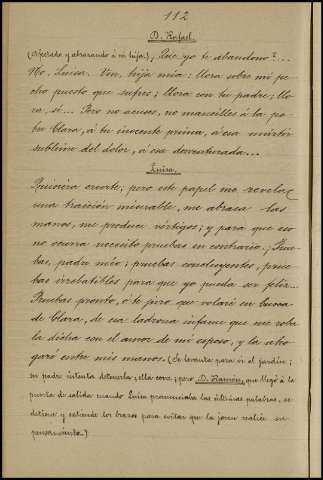 112
D. Rafael.
(Aferado y abrazando á su hija.) ¿Que yo te abandono?...
No, Luisa. Ven, hija mia: llora sobre mi pe-
cho puesto que sufres; llora con tu padre; llo-
ra, sí... Pero no acuses, no mancilles á la po-
bre Clara, á tu inocente prima, á esa mártir
sublime del dolor, á esa desventurada...
Luisa.
Quisiera creerte; pero este papel me revela
una traicion miserable, me abrasa las
manos, me produce vértigos; y para que eso
no ocurra necesito pruebas en contrario. ¡Prue-
bas, padre mio; pruebas concluyentes, prue-
bas irrebatibles para que yo pueda ser feliz...
Pruebas pronto, ó te juro que volaré en busca
de Clara, de esa ladrona infame que me roba
la dicha con el amor de mi esposo, y la aho-
garé entre mis manos. (Se levanta para ir al jardin;
su padre intenta detenerla, ella corre; pero D. Ramon, que llegó á la
puerta de salida cuando Luisa pronunciaba las últimas palabras, se
detiene y estiende los brazos para evitar que la joven realice su
pensamiento.)